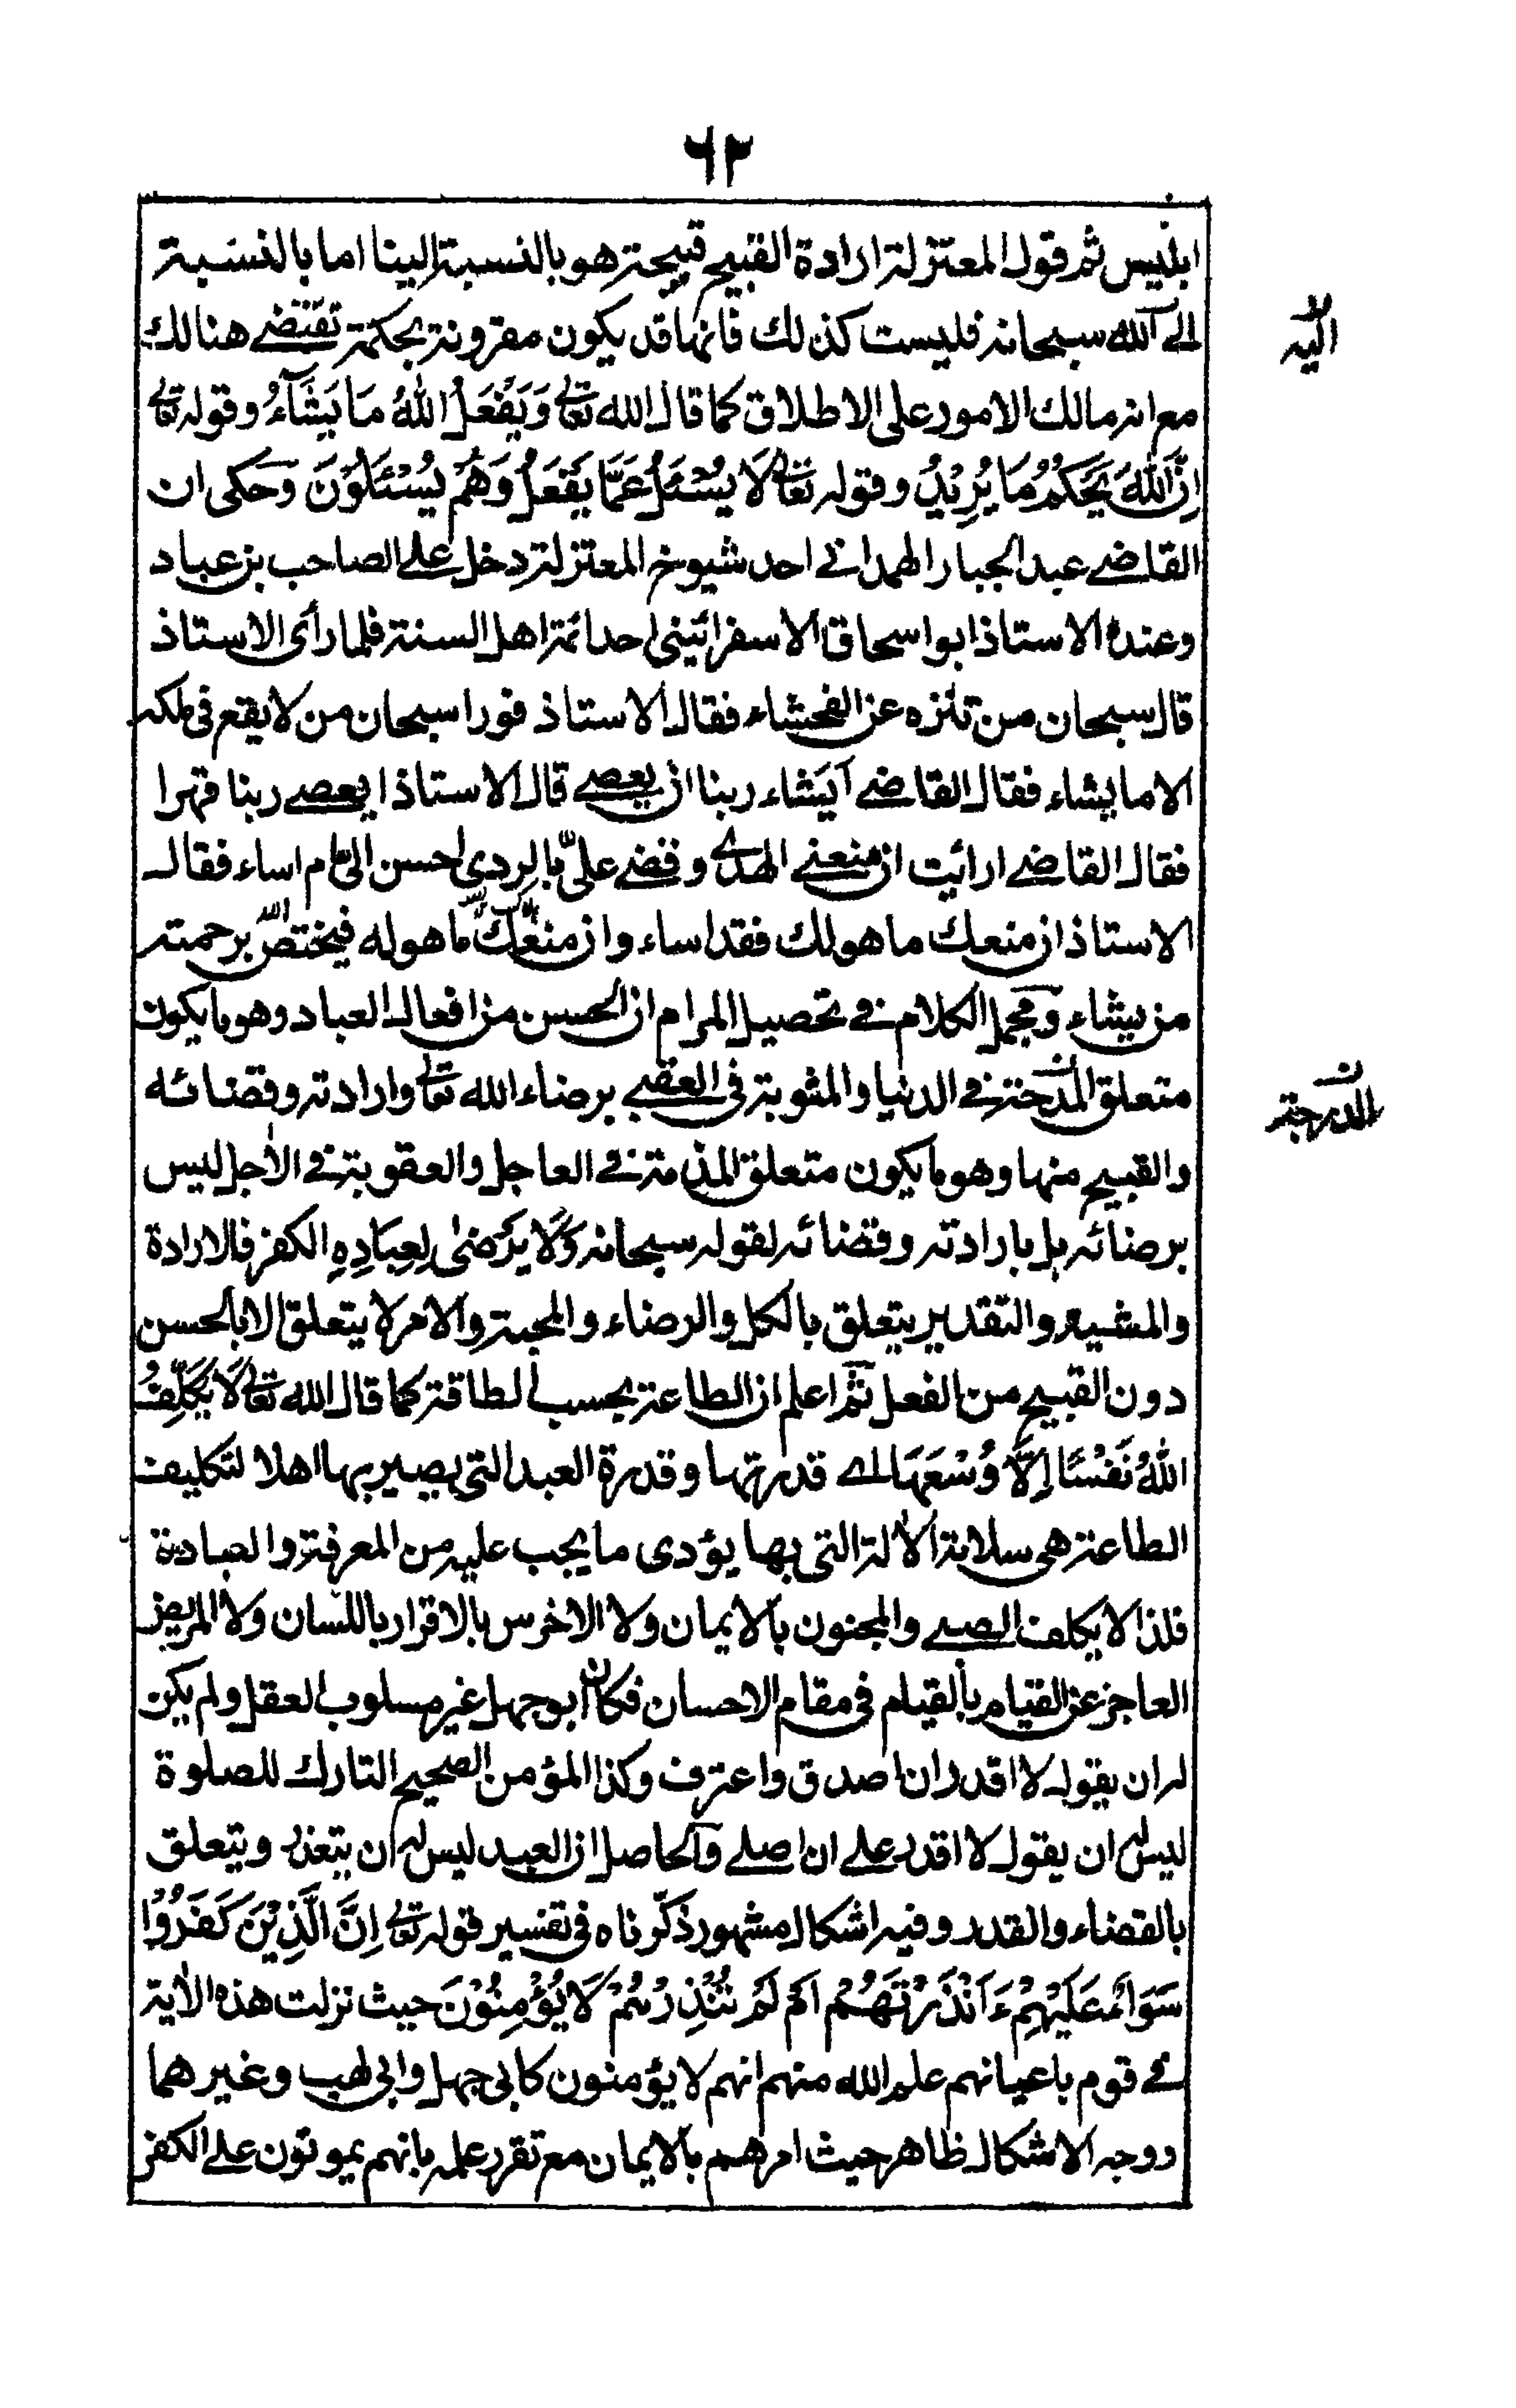 ٦٢
ابليس ثم قول المعتزلة ارادة القبيح قبيحة هو بالنسبة الينا اما بالنسبة
الى الله سبحانه فليست كذلك فانها قد يكون مقرونة بحكمة تقتضي هنالك
اليه
مع انه مالك الامور على الاطلاق كما قال الله تعالى وَيَفْعَلُ اللهُ مَا يَشَآءُ وقوله تعالى
اِنَّ اللهَ يَحْكُمُ مَا يُرِيْدُ وقوله تعالى لَا يُسْئَلُ عَمَّا يَفْعَلُ وَهُمْ يُسْئَلُوْنَ وحكى ان
القاضي عبد الجبار الهمداني احد شيوخ المعتزلة دخل على الصاحب بن عباد
وعنده الاستاذ ابو اسحاق الاسفرائيني احد ائمة اهل السنة فلما رأى الاستاذ
قال سبحان من تنزه عن الفحشاء فقال الاستاذ فورا سبحان من لا يقع في ملكه
الا ما يشاء فقال القاضي أيشاء ربنا ان يعصي قال الاستاذ ايعصي ربنا قهرا
فقال القاضي ارائيت ان منعني الهدى وقضى عليّ بالردى احسن اليّ ام اساء فقال
الاستاذ ان منعك ما هو لك فقد اساء وان منعك ما هو له فيختص الله برحمته
من يشاء ومجمل الكلام في تحصيل المرام ان الحسن من افعال العباد وهو ما يكون
متعلق المدحة في الدنيا والمثوبة في العقبى برضاء الله تعالى وارادته وقضائه
والقبيح منها وهو ما يكون متعلق المذمة في العاجل والعقوبة في الاٰجل ليس
برضائه بل بارادته وقضائه لقوله سبحانه وَلَا يَرْضىٰ لِعِبَادِهِ الكفر فالارادة
والمشية والتقدير يتعلق بالكل والرضاء والمحبة والامر لا يتعلق الا بالحسن
دون القبيح من الفعل ثم اعلم ان الطاعة بحسب الطاقة كما قال الله تعالى لَا يُكَلِّفُ
اللهُ نَفْسًا اِلَّا وُسْعَهَا اي قدرتها وقدرة العبد التي يصير بها اهلا لتكليف
الطاعة هي سلامة الاٰلة التي بها يؤدى ما يجب عليه من المعرفة والعبادة
فلذا لا يكلف الصبي والمجنون بالايمان ولا الاخرس بالاقرار باللسان ولا المريض
العاجز عن القيام بالقيام في مقام الاحسان فكان ابو جهل غير مسلوب العقل ولم يكن
له ان يقول لا اقدر ان اصدق واعترف وكذا المؤمن الصحيح التارك للصلوة
ليس له ان يقول لا اقدر على ان اصلي والحاصل ان العبد ليس له ان يتعذر ويتعلق
بالقضاء والقدر وفيه اشكال مشهور ذكرناه في تفسير قوله تعالى اِنَّ الَّذِيْنَ كَفَرُوْا
سَوَآءٌ عَلَيْهِمْ ءَاَنْذَرْتَهُمْ اَمْ لَمْ تُنْذِرْهُمْ لَا يُؤْمِنُوْنَ حيث نزلت هذه الاٰية
في قوم باعيانهم علم الله منهم انهم لا يؤمنون كابي جهل وابي لهب وغيرهما
ووجه الاشكال ظاهر حيث امرهم بالايمان مع تقرر علمه بانهم يموتون على الكفر